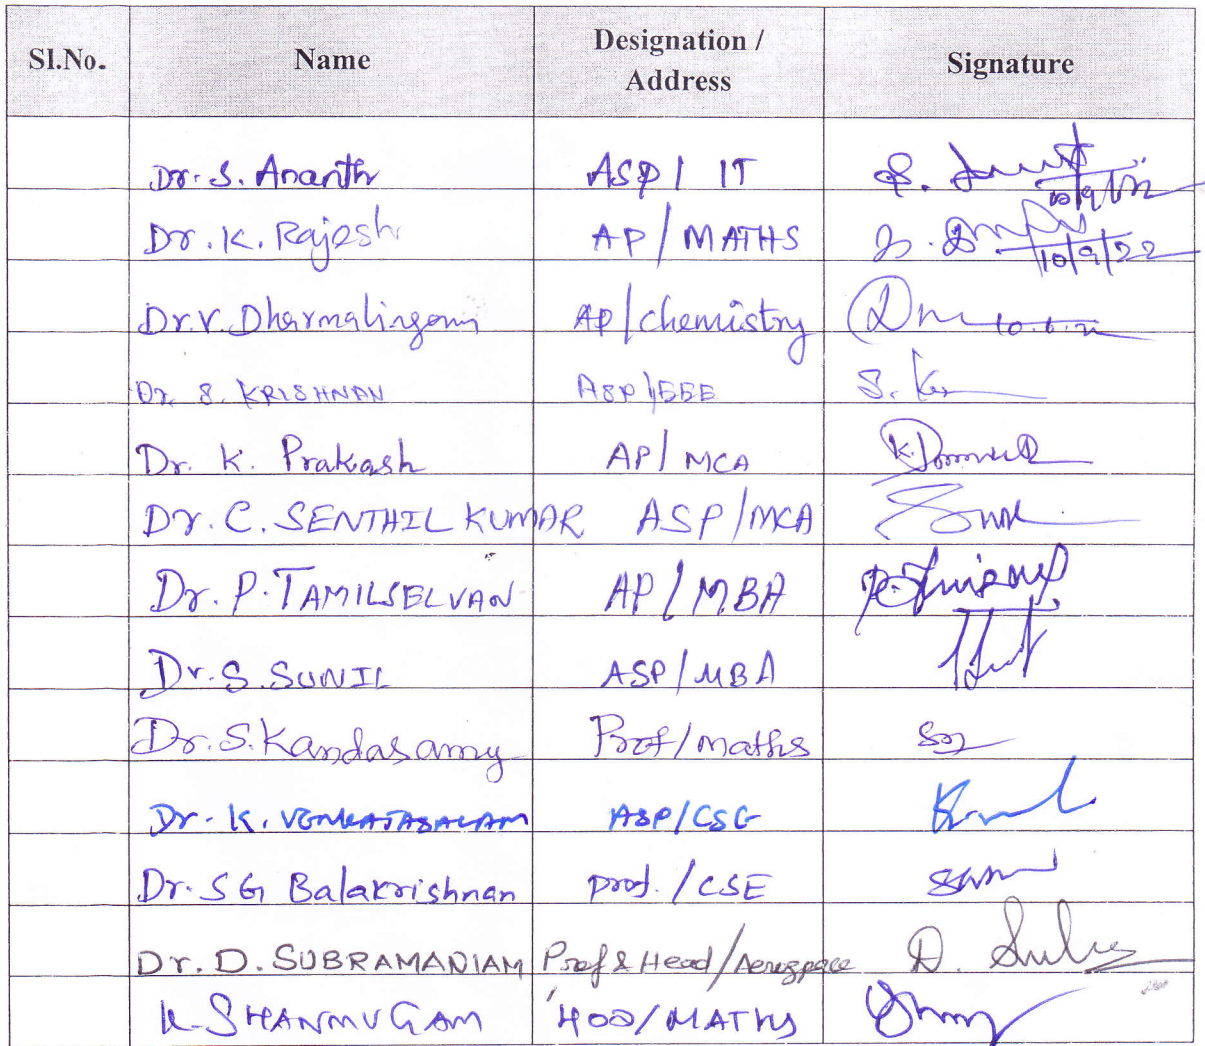 Sl.No. Name Designation / Address Signature
Dr. S. Ananth ASP / IT
Dr. K. Rajesh AP / MATHS 10/9/22
Dr. V. Dharmalingam AP / chemistry
Dr. S. KRISHNAN ASP / EEE
Dr. K. Prakash AP / MCA
Dr. C. SENTHIL KUMAR ASP / MCA
Dr. P. TAMILSELVAN AP / MBA
Dr. S. SUNIL ASP / MBA
Dr. S. Kandasamy Prof / maths
Dr. K. VENKATASALAM ASP / CSE
Dr. SG Balakrishnan prof. / CSE
Dr. D. SUBRAMANIAM Prof & Head / Aerospace
K. SHANMUGAM HOD / MATHS